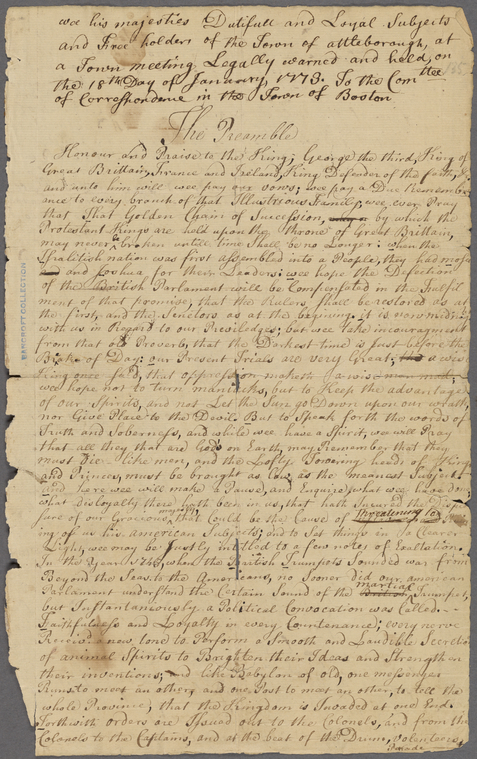 wee his majesties Dutifull and Loyal Subjects
and Free holders of the Town of attleborough, at
a Town meeting Legally warned and held, on
the 18th Day of January, 1773. To the Comttee
of Corrospondence in the Town of Boston
The Preamble
Honour and Praise to the King; George the third, King of
Great Brittain, France and Ireland, King Defender of the faith,
and unto him will wee pay our vows; wee pay a Due Remember
ance to every branch of that Illustreous Family; wee ever Pray
that That Golden Chain of Succession, by which the
Protestant Kings are held upon the Throne of Great Brittain,
may never be broken untill time Shall be no Longer: when the
Isralitish nation was first assembled into a People, they had moses
and Joshua for their Leaders: wee hope the Defection
of the British Parliament will be Compensated in the fulfil
ment of that promise; that the Rulers, Shall be restored as at
the first, and the Senetors as at the begining: it is now
with us in Regard to our Priviledges; but wee take incouragment
from that old Proverb, that the Darkest time is just before the
Brake of Day: our Present Trials are very Great; a wise
King once said, that oppression maketh a wise man mad;
wee hope not to turn maniaks, but to keep the advantage
of our Spirits, and not Let the Sun go Down upon our wrath,
nor Give Place to the Devil. But to Speak forth the words of
Truth and Soberness, and while wee have a Spirit, we will Pray
that all they that are Gods on Earth, may Remember that they
must Die like men, and the Lofty Towering heads of Kings
and Princes, must be brought as low as the meanest Subject
and here wee will make a Pause, and Enquire what wee have don
what disloyalty there hath been in us, that hath
sure of our Gracious that Could be the Cause of threatening
ing of us his american Subjects; and to Set things in a Clearer
Light, wee may be justly intitled to a few notes of Exaltation.
In the Year when the British Trumpets Sounded war from
Beyond the Seas to the Americans, no Sooner Did our american
Parlament understand the Certain Sound of the martial Trumpet,
but Instantaniously, a Political Convocation was Called.
Faithfulness and Loyalty in every Countenance; every nerve
Received a new tone to Perform a Smooth and Laudible Secretion
of animal Spirits to Brighten their Ideas and Strengthen
their inventions; and like Babylon of old, one messenger
Runs to meet an other, and one Post to meet an other, to tell the
whole Province, that the Kingdom is Invaded at one End.
Forthwith orders are Issued out to the Colonels, and from the
Colonels to the Captains, and at the beat of the Drum, volenteres,
BANCROFT COLLECTION